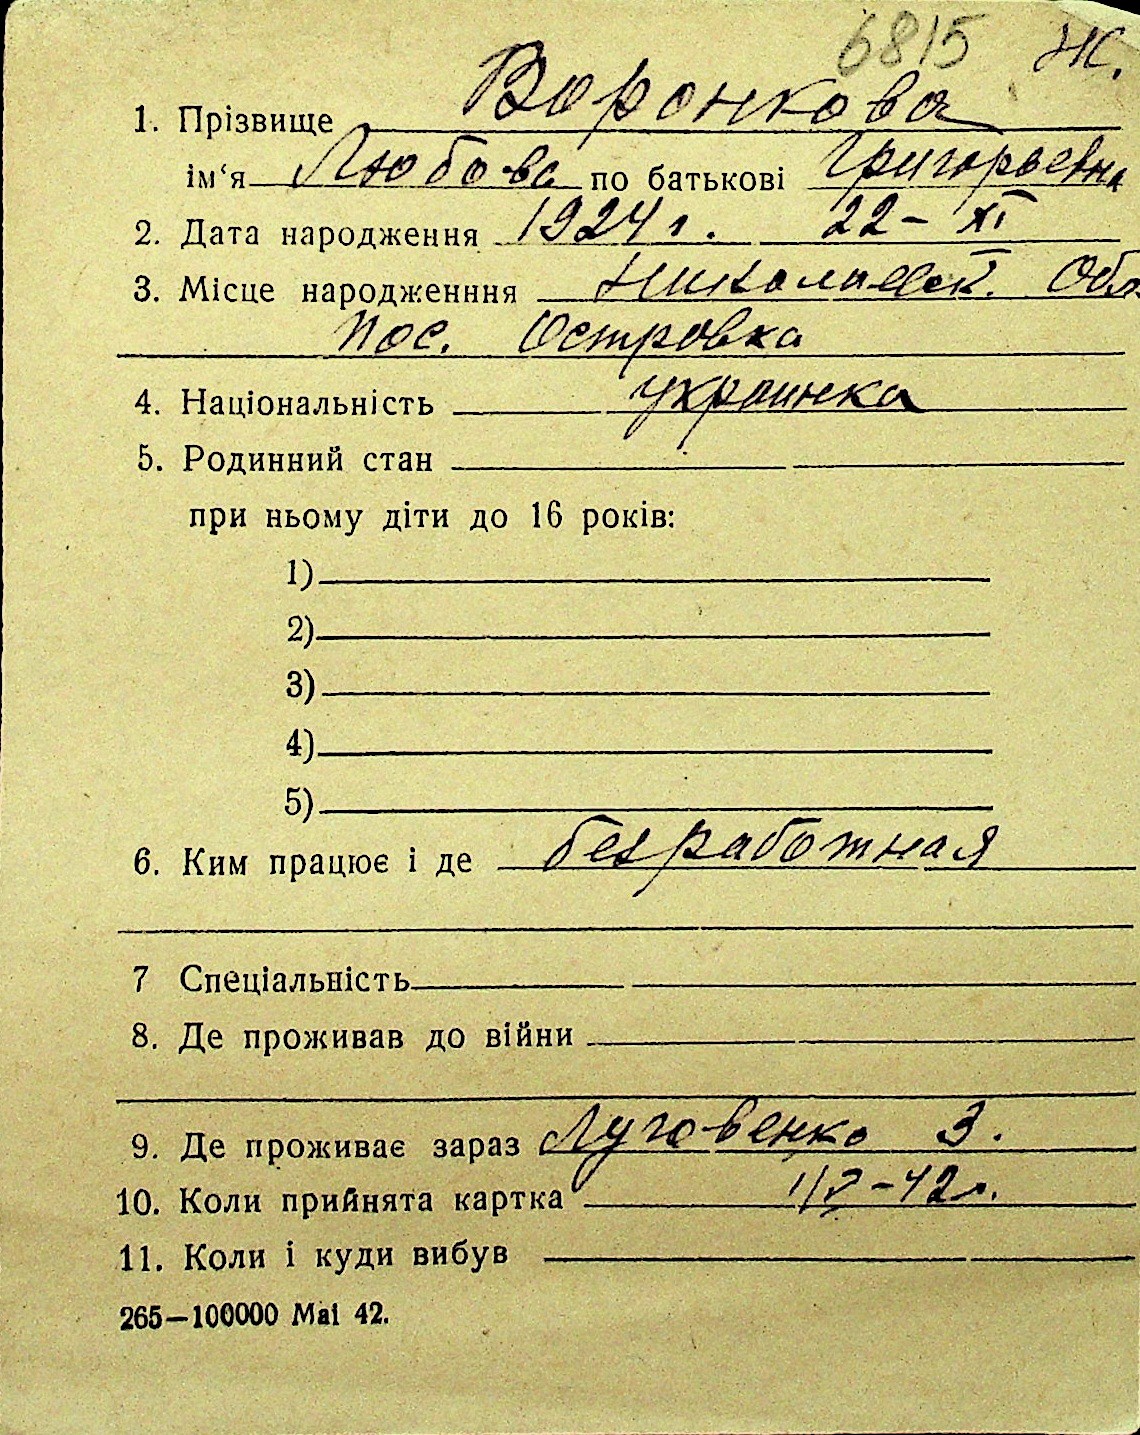 6815 Ж.
1. Прізвище Воронкова
ім‘я Любовь по батькові Григорьевна
2. Дата народження 1924 г. 22 – XI
3. Місце народженння Николаевск. Обл.
пос. Островка
4. Національність украинка
5. Родинний стан
при ньому діти до 16 років:
1)
2)
3)
4)
5)
6. Ким працює і де безработная
7 Спеціальність
8. Де проживав до війни
9. Де проживає зараз Луговенко 3.
10. Коли прийнята картка
11. Коли і куди вибув
265—100000 Маі 42.